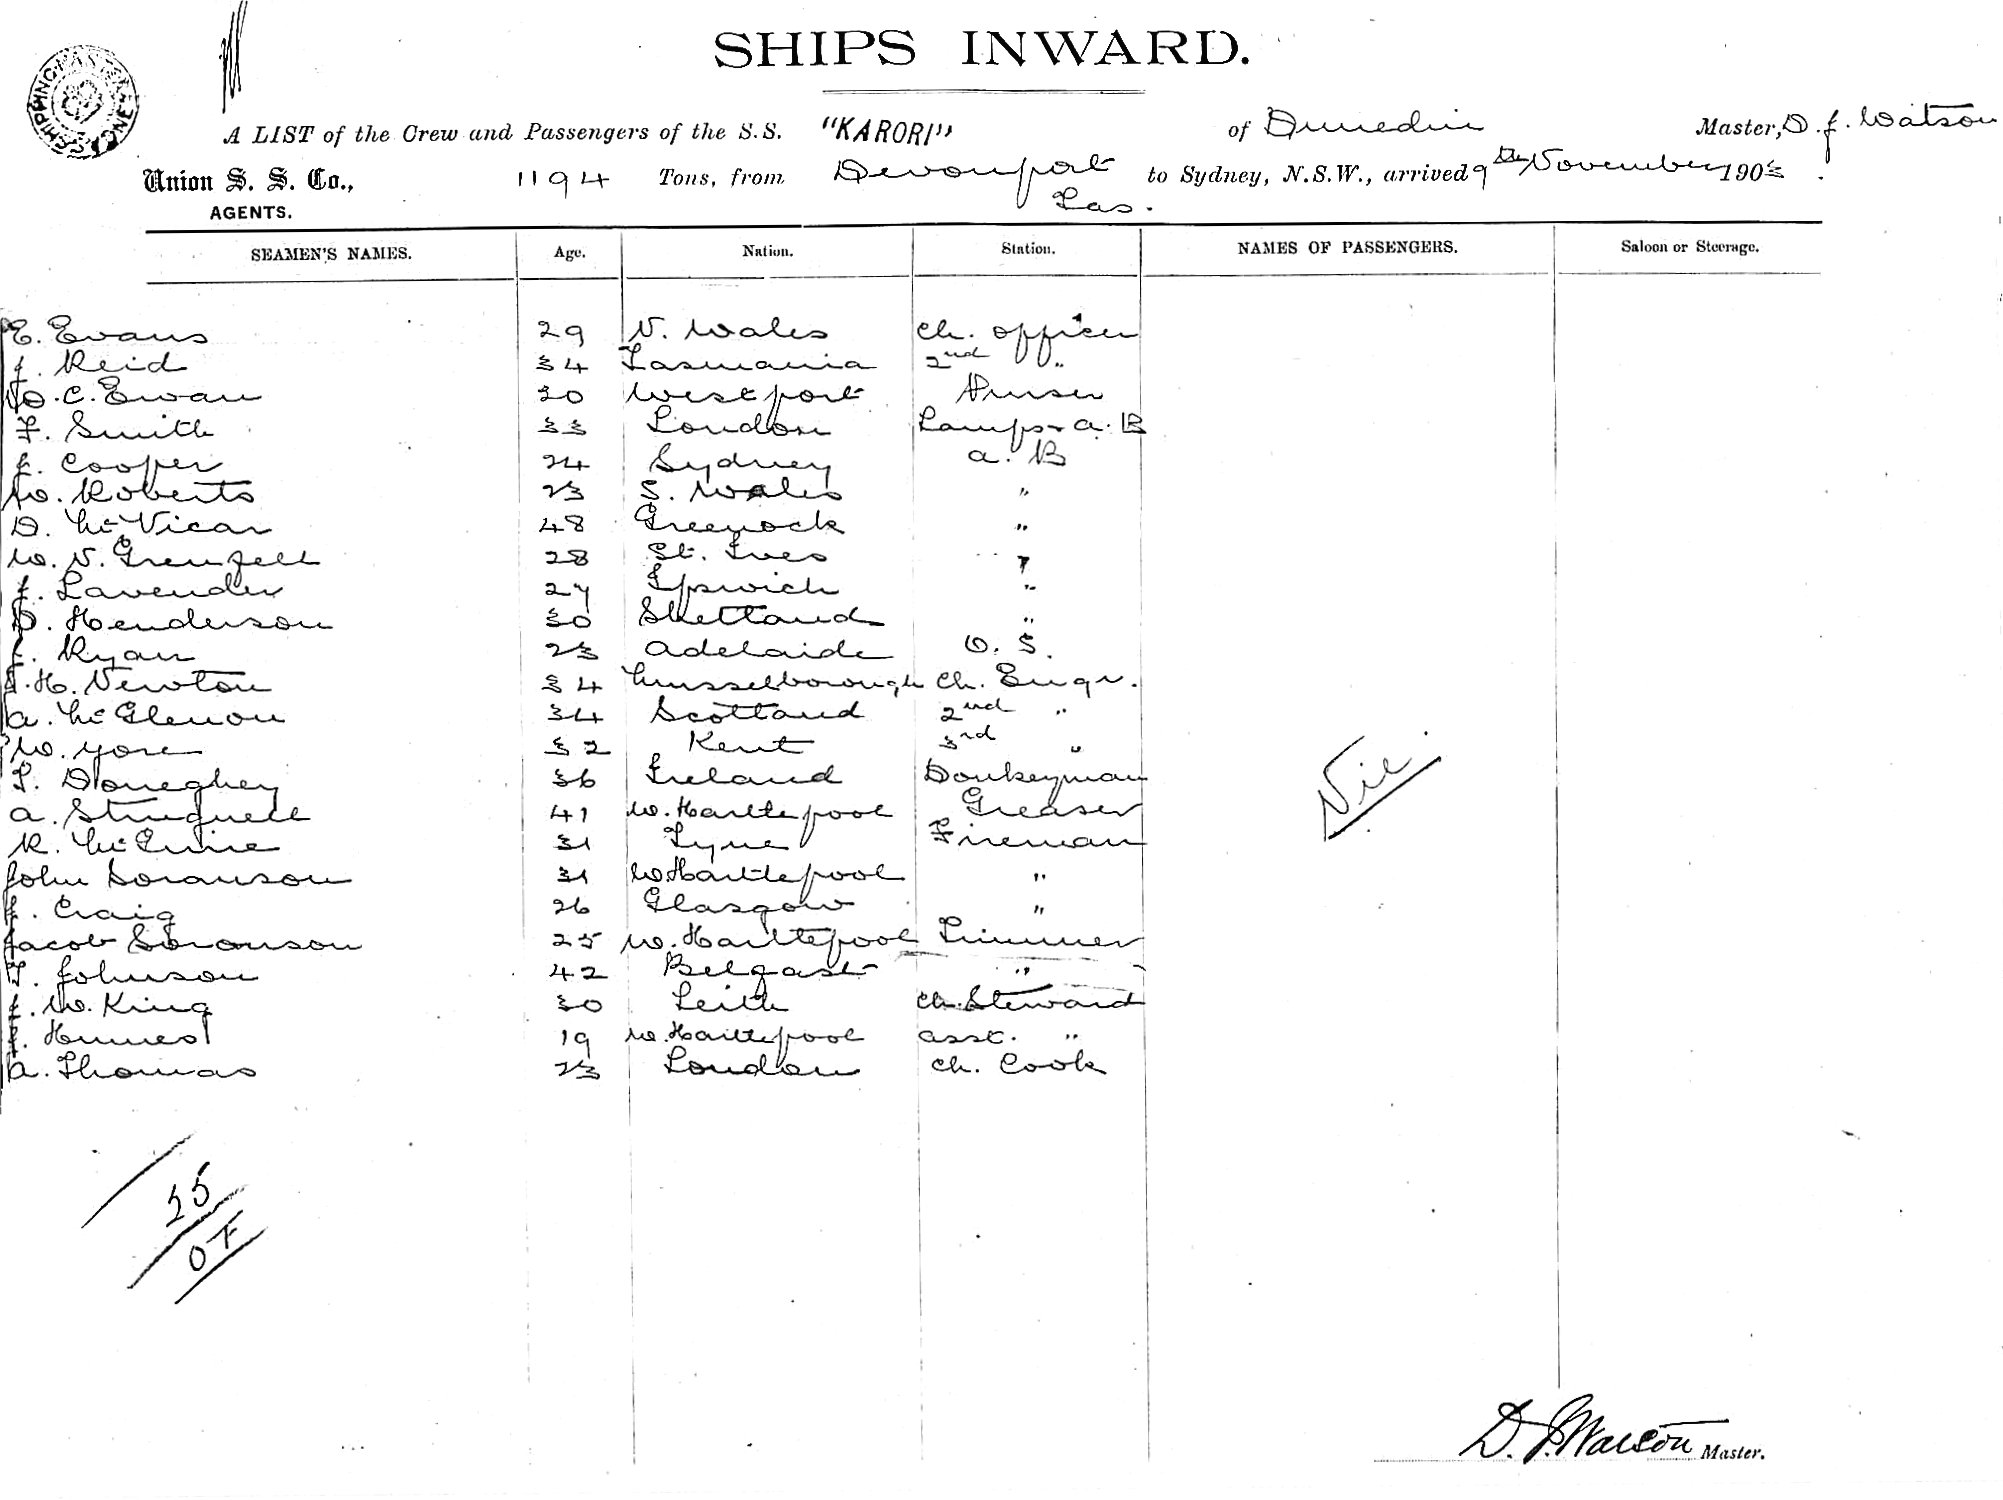 SHIPS INWARD.
SHIPPING MASTER SYDNEY
A LIST of the Crew and Passengers of the S.S. "KARORI" of Dunedin Master, D. J. Watson
Union S. S. Co., 1194 Tons, from Devonport to Sydney, N.S.W., arrived 9th November 1903
AGENTS. Tas.
SEAMEN'S NAMES. Age. Nation. Station. NAMES OF PASSENGERS. Saloon or Steerage.
E. Evans 29 N. Wales Ch. Officer
J. Reid 34 Tasmania 2nd "
W. C. Ewan 30 Westport Purser
F. Smith 33 London Lamps & A. B
J. Cooper 24 Sydney A. B
W. Roberts 23 S. Wales "
D. McVicar 48 Greenock "
W. N. Grenfell 28 St. Ives "
J. Lavender 27 Ipswich "
D. Henderson 30 Shetland "
J. Ryan 23 Adelaide O. S.
H. Newton 34 Musselborough Ch. Engr.
A. McGlenon 34 Scotland 2nd "
W. Yore 32 Kent 3rd "
T. Doneghey 36 Ireland Donkeyman
A. 41 W. Hartlepool Greaser
R. 31 Tyne Fireman
John Soranson 31 W Hartlepool "
J. Craig 26 Glasgow "
Jacob Soronson 25 W. Hartlepool Trimmer
T. Johnson 42 Belfast "
J. W. King 30 Leith Ch. Steward
Hunnes 19 W. Hartlepool Asst. "
A. Thomas 23 London Ch. Cook
Nil
25
D. J. Watson Master.